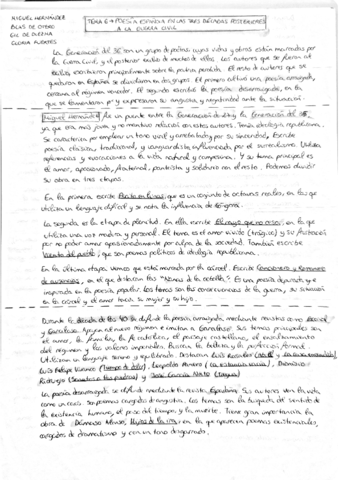 MIGUEL HERNÁNDEZ
BLAS DE OTERO
GIL DE BIEDMA
GLORIA FUERTES
TEMA 6 → POESÍA ESPAÑOLA EN LAS TRES DÉCADAS POSTERIORES
A LA GUERRA CIVIL
La Generación del 36 son un grupo de poetas cuyas vidas y obras están marcadas por
la Guerra civil, y el posterior exilio de muchos de ellos. Los autores que se fueron al
exilio, escribieron principalmente sobre la patria perdida. El resto de autores que se
quedaron en España se dividieron en dos grupos. El primero cultivó una poesía arraigada,
cercana al régimen vencedor. El segundo escribió la poesía desarraigada, en la
que se lamentaban y expresaron su angustia y negatividad ante la situación.
Miguel Hernández fue un puente entre la Generación del 27 y la Generación del 36,
ya que era más joven y no mantuvo relación con estos autores. Tenía ideología republicana.
Se caracteriza por emplear un tono viril y por su sinceridad. Escribe
poesía clásica, tradicional, y vanguardista influenciada por el surrealismo. Utiliza
referencias y evocaciones a la vida natural y campesina. Y su tema principal es
el amor, apasionado, fraternal, panteísta y solidario con el resto. Podemos dividir
su obra en tres etapas.
En la primera escribe Perito en lunas, que es un conjunto de octavas reales, en las que
utiliza un lenguaje difícil y se nota la influencia de Góngora.
La segunda, es la etapa de plenitud. En ella escribe El rayo que no cesa, en la que
utiliza una voz madura y personal. El tema es el amor (trágico) y su frustración
por no poder amar apasionadamente por culpa de la sociedad. También escribe
Viento del pueblo, que son poemas políticos de ideología republicana.
En la última etapa, vemos que está marcada por la cárcel. Escribe Cancionero y Romancero
de ausencias, en el que destacan las "Nanas de la cebolla". Es una poesía depurada y
inspirada en la poesía popular. Los temas son las consecuencias de la guerra, su situación
en la cárcel y el amor hacia su mujer y su hijo.
Durante la década de los 40 la poesía arraigada mediante revistas como Escorial
y Garcilaso. Apoyan al nuevo régimen e imitan a Garcilaso. Sus temas principales son
el amor, la familia, la fe católica, el paisaje castellano, el
del régimen y los valores imperiales. Buscan la belleza y la perfección formal.
Utilizaron un lenguaje sereno y equilibrado. Destacan Luis Rosales (La casa encendida)
Luis Felipe Vivanco (Tiempo de dolor), Leopoldo Panero (La estancia vacía), Dionisio
Ridruejo y José García Nieto
La poesía desarraigada, se mediante la revista Espadaña. Sus autores ven la vida
como un caos. Son poemas cargados de angustia. Los temas son la búsqueda del sentido de
la existencia humana, el paso del tiempo y la muerte. Tiene gran importancia la
obra de Dámaso Alonso, Hijos de la ira, en la que aparecen poemas existenciales,
cargados de dramatismo y con un tono desgarrado.